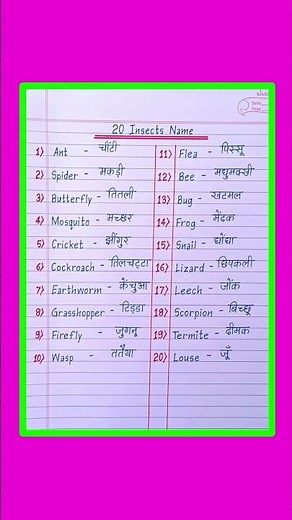 20 Insects Name
1) Ant - चींटी
2) Spider - मकड़ी
3) Butterfly - तितली
4) Mosquito - मच्छर
5) Cricket - झींगुर
6) Cockroach - तिलचट्टा
7) Earthworm - केंचुआ
8) Grasshopper - टिड्डा
9) Firefly - जुगनू
10) Wasp - ततैया
11) Flea - पिस्सू
12) Bee - मधुमक्खी
13) Bug - खटमल
14) Frog - मेंढक
15) Snail - घोंघा
16) Lizard - छिपकली
17) Leech - जोंक
18) Scorpion - बिच्छू
19) Termite - दीमक
20) Louse - जूँ